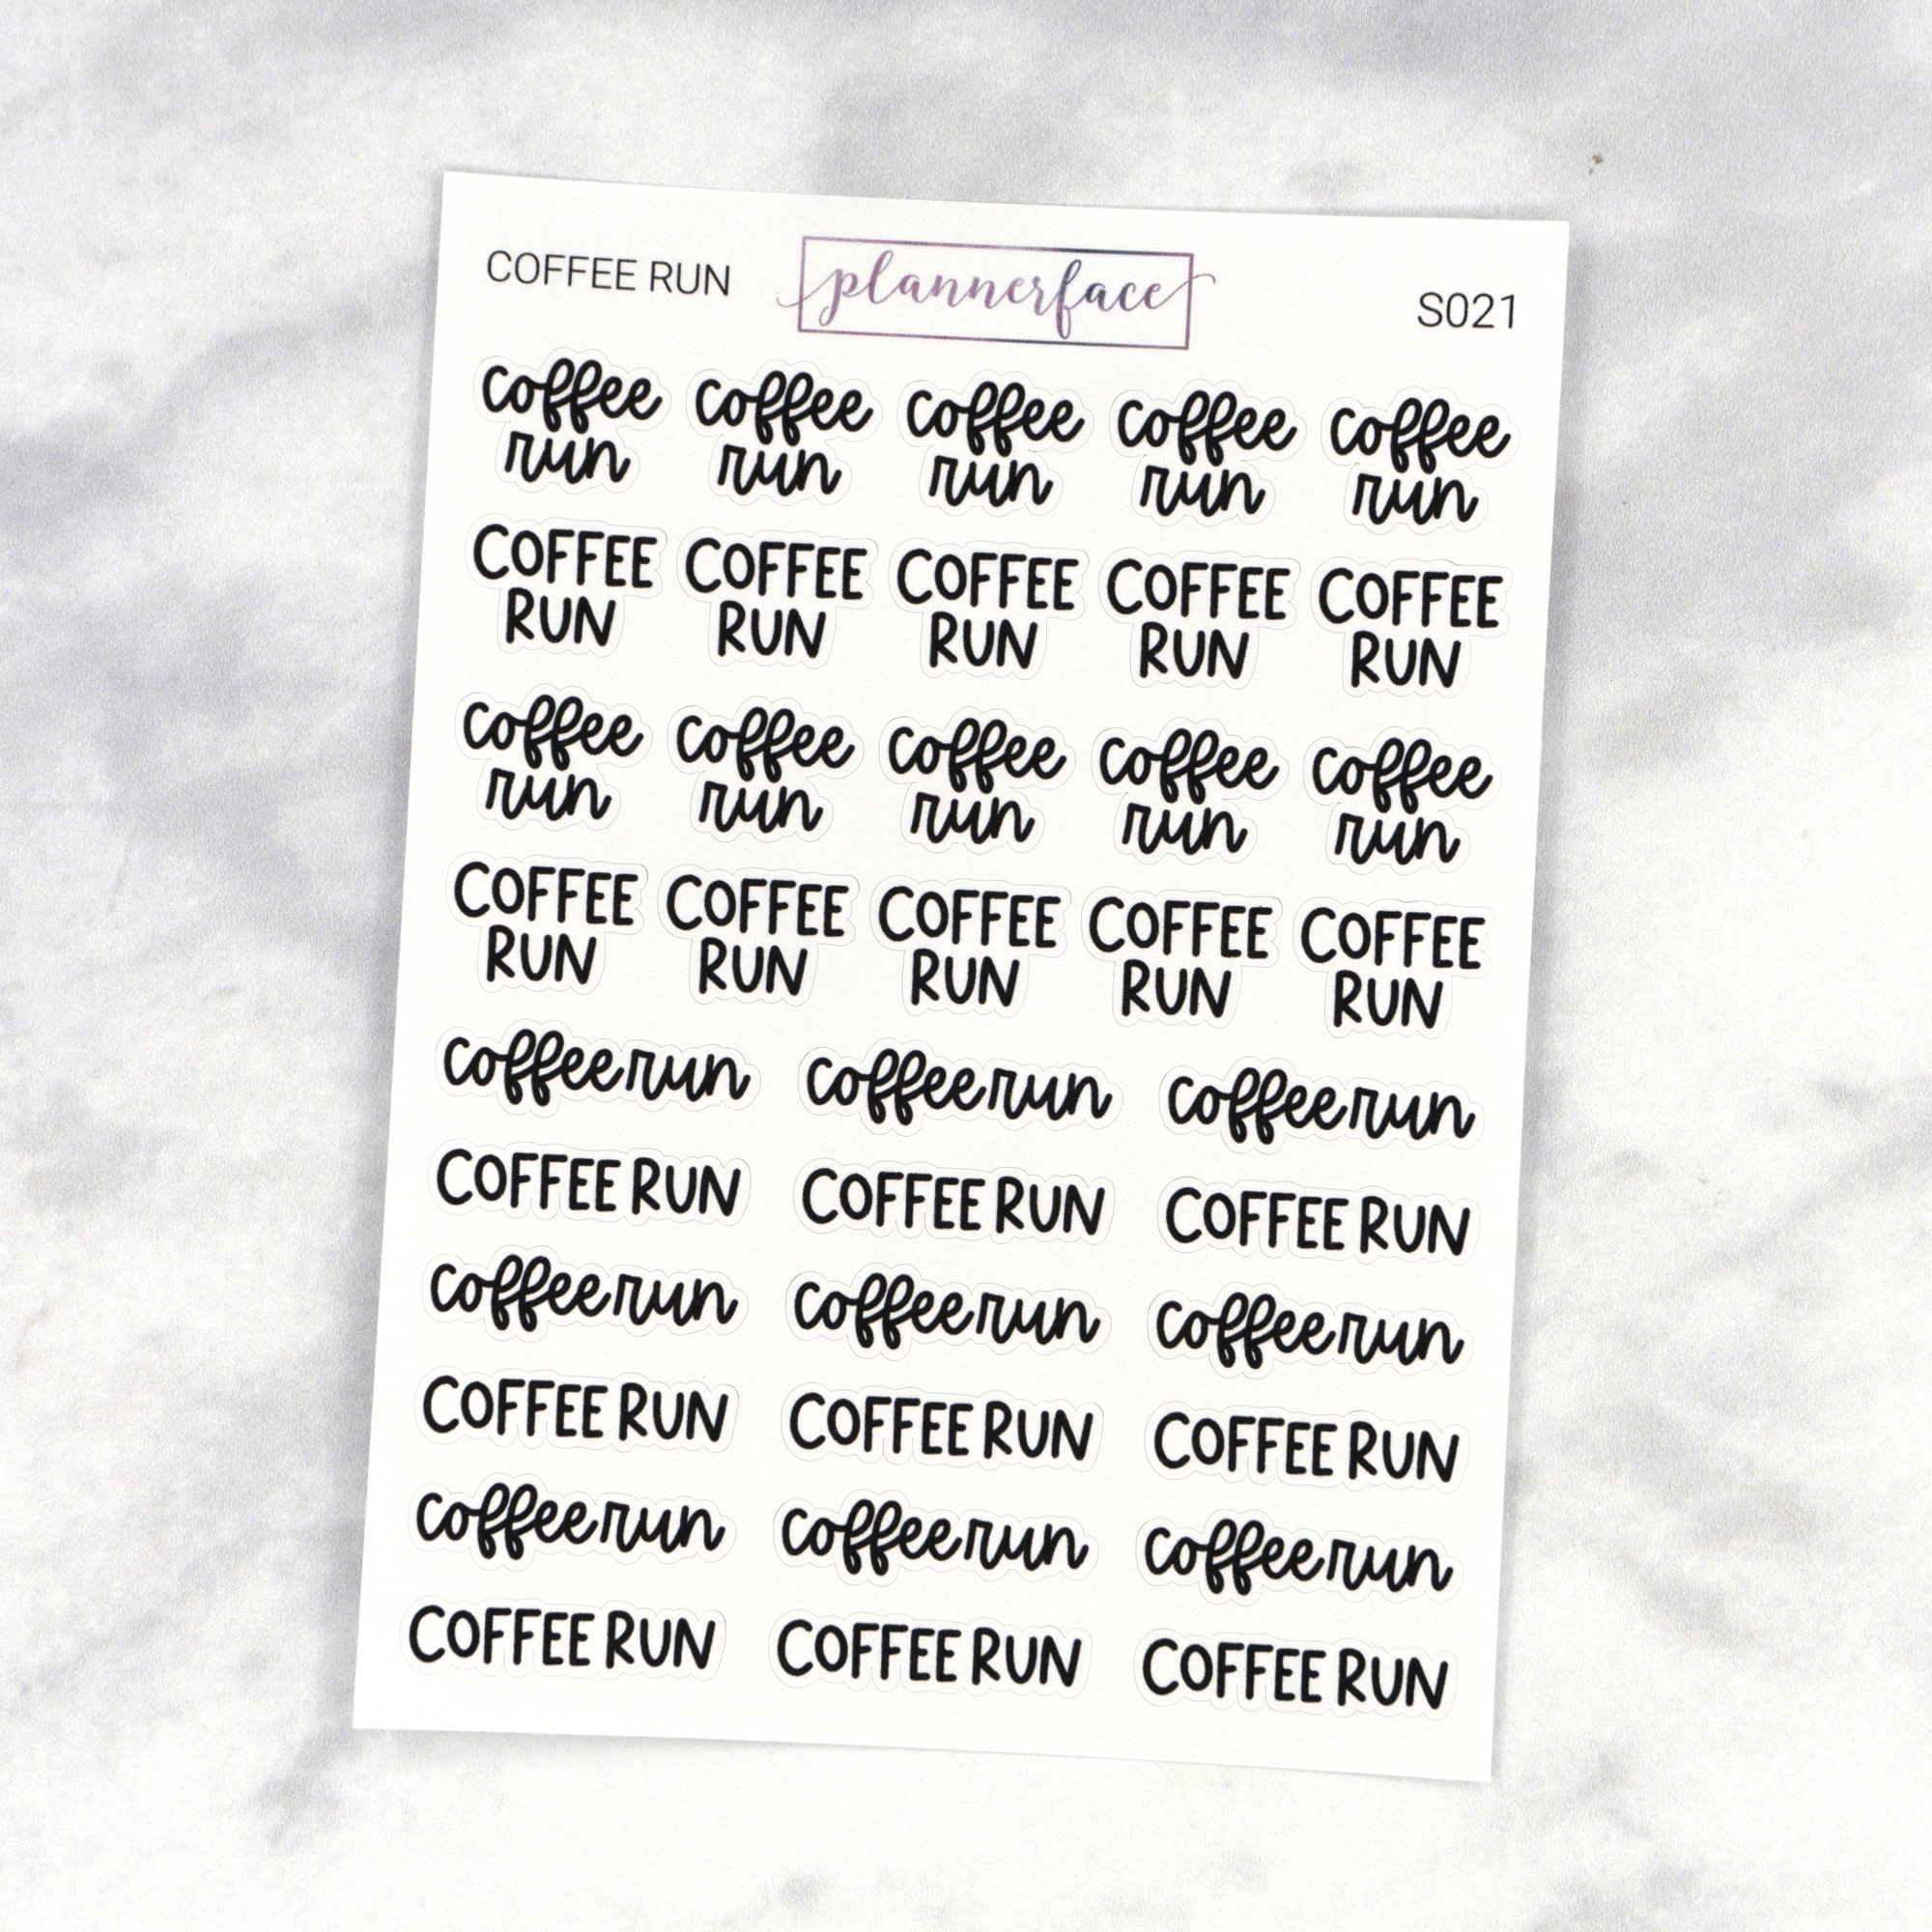 COFFEE RUN plannerface S021
coffee coffee coffee coffee coffee
run run run run run
COFFEE COFFEE COFFEE COFFEE COFFEE
RUN RUN RUN RUN RUN
coffee coffee coffee coffee coffee
run run run run run
COFFEE COFFEE COFFEE COFFEE COFFEE
RUN RUN RUN RUN RUN
coffee run coffee run coffee run
COFFEE RUN COFFEE RUN COFFEE RUN
coffee run coffee run coffee run
COFFEE RUN COFFEE RUN COFFEE RUN
coffee run coffee run coffee run
COFFEE RUN COFFEE RUN COFFEE RUN